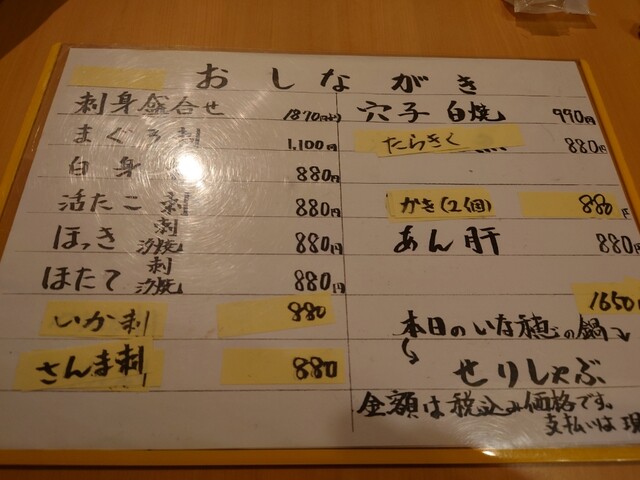 おしながき
刺身盛合せ 1870円より
まぐろ刺 1,100円
白身 880円
活たこ刺 880円
ほっき 刺 汐焼 880円
ほたて 刺 汐焼 880円
いか刺 880
さんま刺 880
穴子白焼 990円
たらきく 880円
かき(2個) 880円
あん肝 880円
1650
本日のいな穂の鍋
せりしゃぶ
金額は税込み価格です。
支払いは現